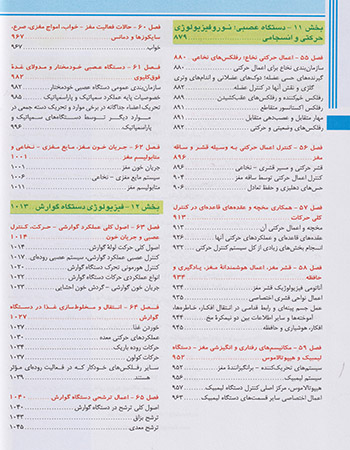 بخش ۱۱ - دستگاه عصبی: نوروفیزیولوژی
حرکتی و انسجامی ۸۷۹
فصل ۵۵ - اعمال حرکتی نخاع؛ رفلکس‌های نخاعی ۸۸۰
سازمان‌بندی نخاع برای اعمال حرکتی ۸۸۰
گیرنده‌های حسی عضله؛ دوک‌های عضلانی و اندام‌های وتری
گلژی و نقش آنها در کنترل عضله ۸۸۲
رفلکس خم‌کننده و رفلکس‌های عقب‌کشیدن ۸۸۹
رفلکس اکستانسور متقاطع ۸۹۱
مهار متقابل و عصب‌دهی متقابل ۸۹۱
رفلکس‌های وضعیتی و حرکتی ۸۹۲
فصل ۵۶ - کنترل اعمال حرکتی به وسیله قشر و ساقه
مغز ۸۹۶
قشر حرکتی و مسیر قشری - نخاعی ۸۹۶
کنترل اعمال حرکتی توسط ساقه مغز ۹۰۴
حس‌های دهلیزی و حفظ تعادل ۹۰۶
فصل ۵۷ - همکاری مخچه و عقده‌های قاعده‌ای در کنترل
کلی حرکات ۹۱۳
مخچه و اعمال حرکتی آن ۹۱۳
عقده‌های قاعده‌ای و عملکردهای حرکتی آنها ۹۲۶
انجام بخش‌های زیادی از کل سیستم کنترل حرکتی ۹۳۲
فصل ۵۸ - قشر مغز، اعمال هوشمندانهٔ مغز، یادگیری و
حافظه ۹۳۴
آناتومی فیزیولوژیک قشر مغز ۹۳۴
اعمال نواحی قشری اختصاصی ۹۳۵
عمل جسم پینه‌ای و رابط قدامی در انتقال افکار، خاطره‌ها،
آموخته‌ها و سایر اطلاعات بین دو نیمکرهٔ مخ ۹۴۴
افکار، هوشیاری و حافظه ۹۴۵
فصل ۵۹ - مکانیسم‌های رفتاری و انگیزشی مغز - دستگاه
لیمبیک و هیپوتالاموس ۹۵۲
سیستم‌های تحریک‌کننده - برانگیزانندهٔ مغز ۹۵۲
سیستم لیمبیک ۹۵۶
هیپوتالاموس، مرکز اصلی کنترل دستگاه لیمبیک ۹۵۷
اعمال اختصاصی سایر قسمت‌های دستگاه لیمبیک ۹۶۲
فصل ۶۰ - حالات فعالیت مغز - خواب، امواج مغزی، صرع،
سایکوزها و دمانس ۹۶۷
خواب ۹۶۷
فصل ۶۱ - دستگاه عصبی خودمختار و مدولای غدهٔ
فوق‌کلیوی ۹۸۲
سازمان‌بندی عمومی دستگاه عصبی خودمختار ۹۸۲
خصوصیات پایه عملکرد سمپاتیک و پاراسمپاتیک ۹۸۵
تحریک اعضاء جداگانه در برخی موارد و تحریک دسته جمعی در
موارد دیگر توسط دستگاه‌های سمپاتیک و
پاراسمپاتیک ۹۹۶
فصل ۶۲ - جریان خون مغز، مایع مغزی - نخاعی و
متابولیسم مغز ۱۰۰۱
جریان خون مغز ۱۰۰۱
سیستم مایع مغزی - نخاعی ۱۰۰۶
متابولیسم مغز ۱۰۱۱
بخش ۱۲ - فیزیولوژی دستگاه گوارش ۱۰۱۳
فصل ۶۳ - اصول کلی عملکرد گوارشی - حرکت، کنترل
عصبی و جریان خون ۱۰۱۴
اصول کلی حرکت لولهٔ گوارش ۱۰۱۴
کنترل عصبی عملکرد گوارشی، سیستم عصبی روده‌ای ۱۰۱۷
کنترل هورمونی تحرک دستگاه گوارش ۱۰۲۰
انواع عملکردی حرکات دستگاه گوارش ۱۰۲۲
جریان خون گوارشی - گردش خون احشایی ۱۰۲۳
فصل ۶۴ - انتقال و مخلوط‌سازی غذا در دستگاه
گوارش ۱۰۲۷
خوردن غذا ۱۰۲۷
عملکردهای حرکتی معده ۱۰۳۰
حرکات روده باریک ۱۰۳۴
حرکات کولون ۱۰۳۷
سایر رفلکس‌های خودکار که در فعالیت روده‌ای مؤثر
هستند ۱۰۳۹
فصل ۶۵ - اعمال ترشحی دستگاه گوارش ۱۰۴۰
اصول کلی ترشح در دستگاه گوارش ۱۰۴۰
ترشح بزاق ۱۰۴۳
ترشح معدی ۱۰۴۵